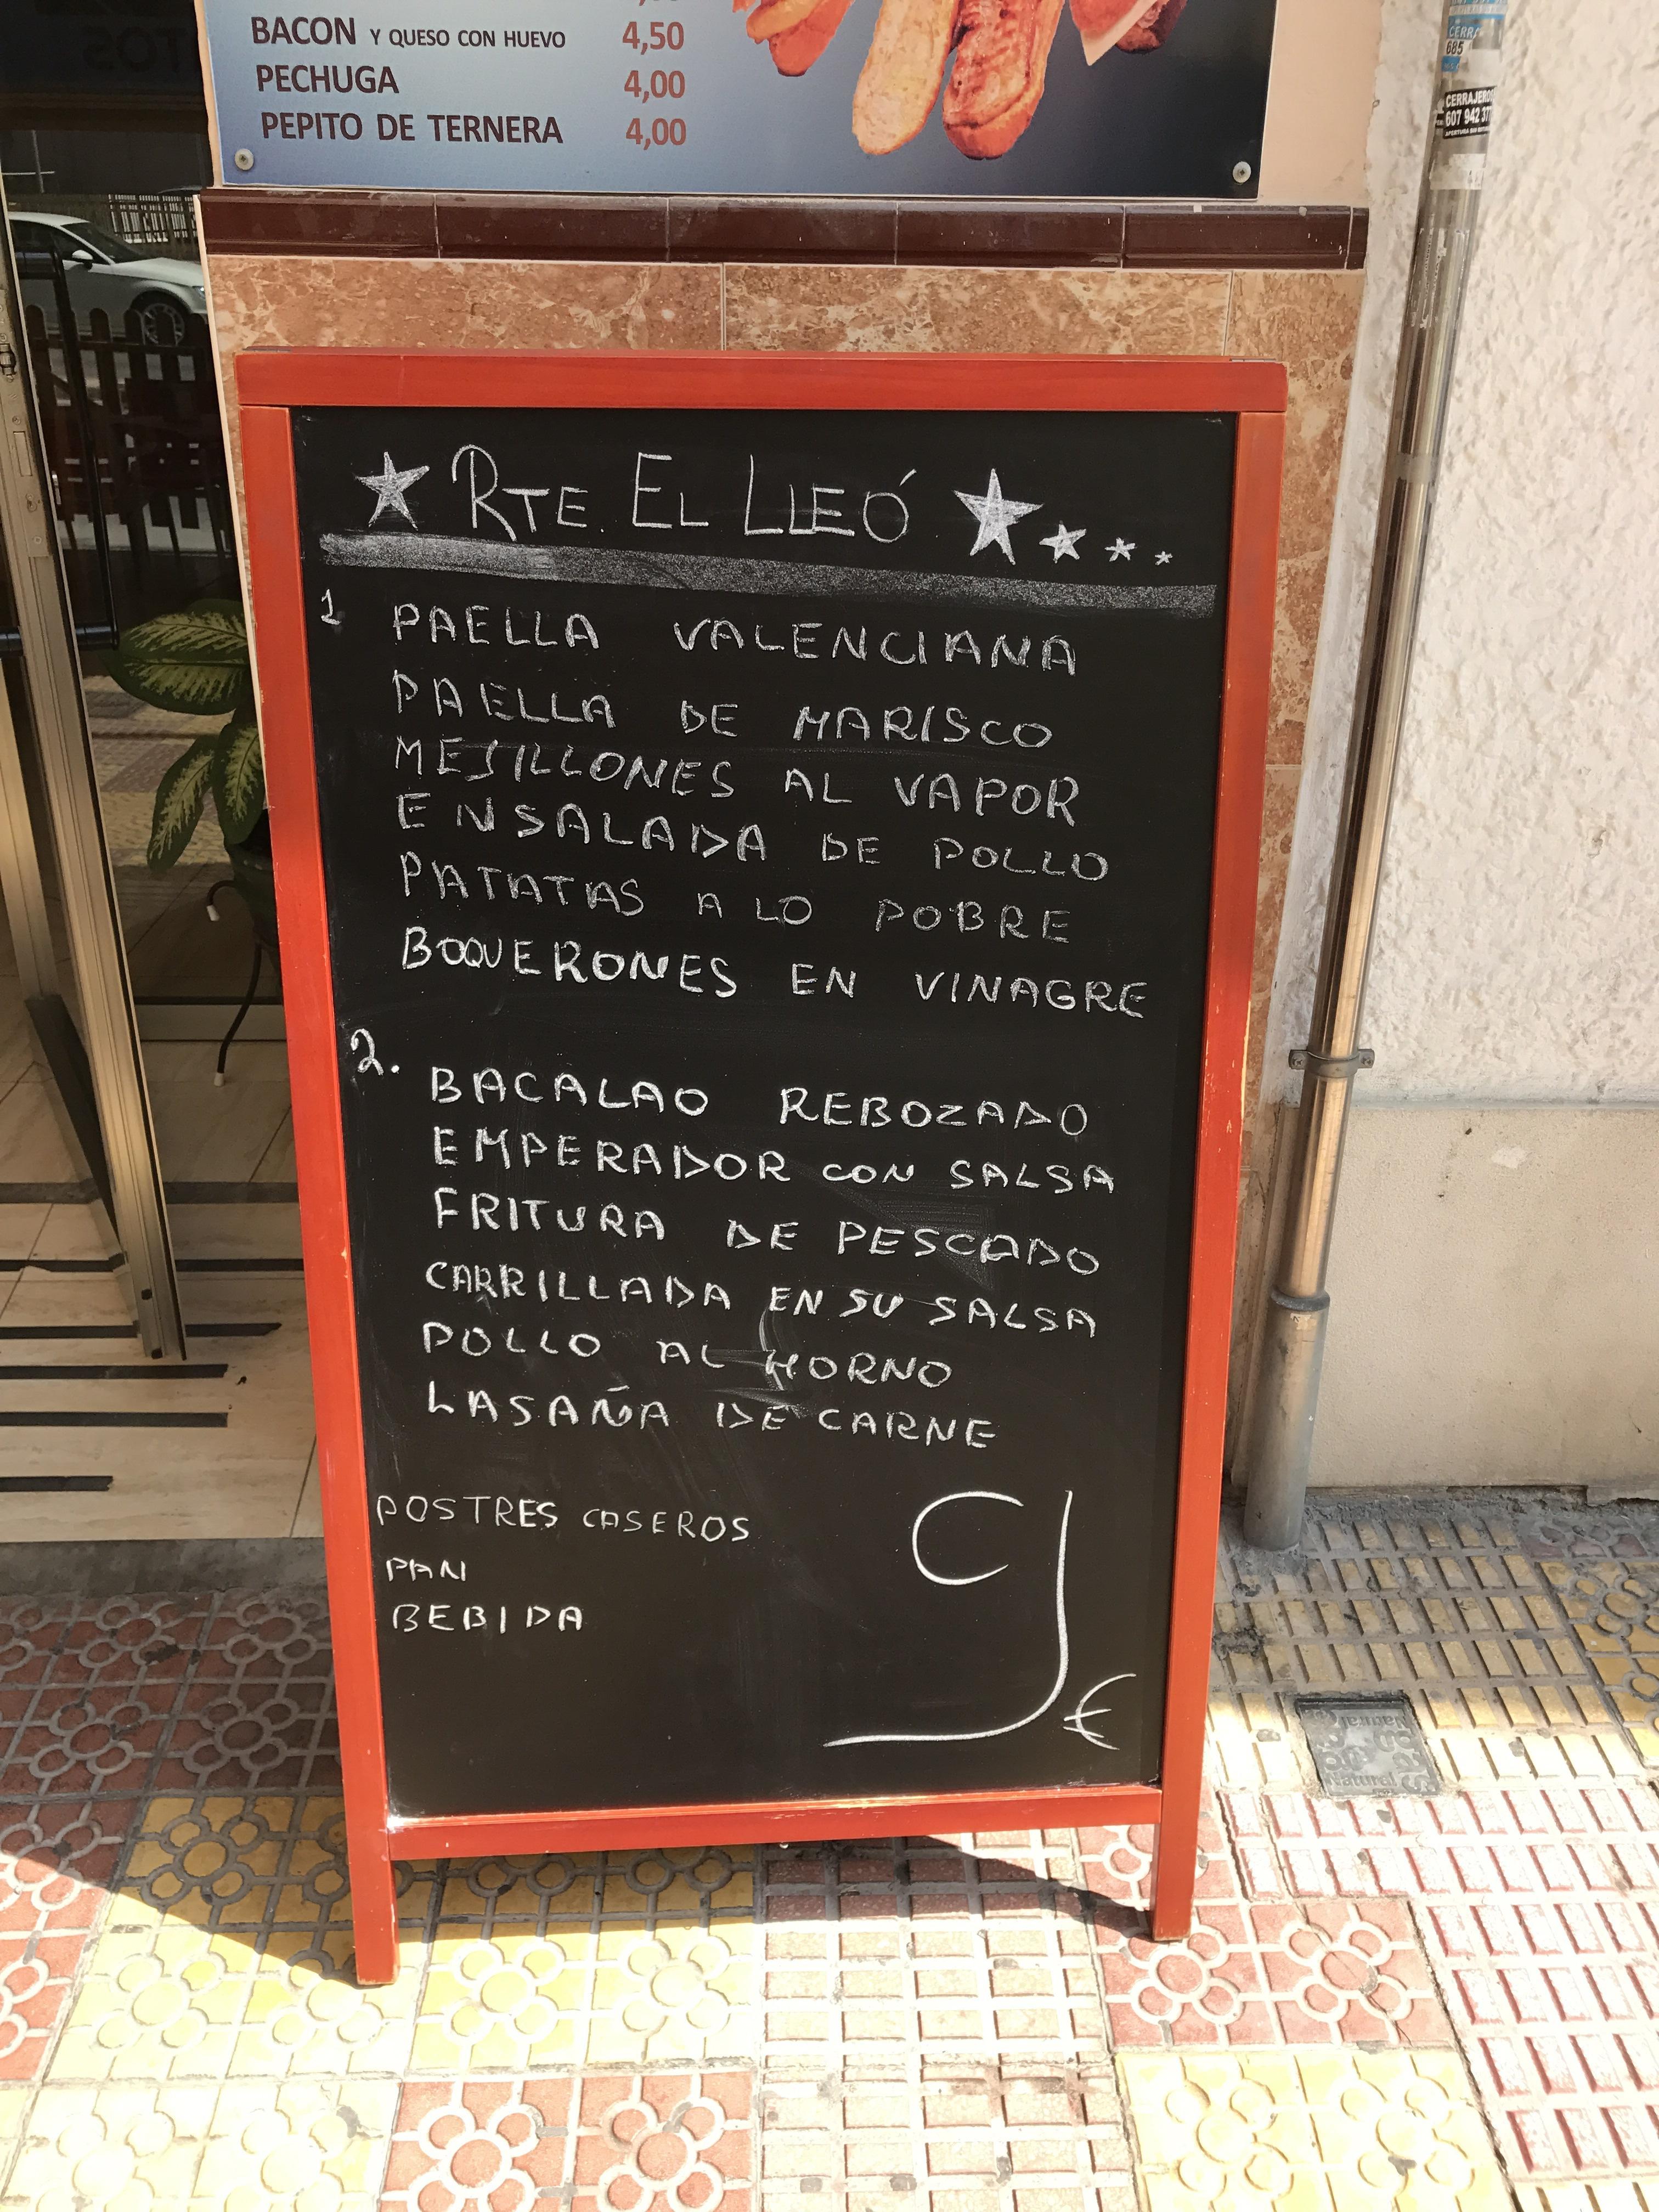 BACON Y QUESO CON HUEVO 4,50
PECHUGA 4,00
PEPITO DE TERNERA 4,00
CERRAJEROS
607 942 37
RTE. EL LLEÓ
1 PAELLA VALENCIANA
PAELLA DE MARISCO
MEJILLONES AL VAPOR
ENSALADA DE POLLO
PATATAS A LO POBRE
BOQUERONES EN VINAGRE
2. BACALAO REBOZADO
EMPERADOR CON SALSA
FRITURA DE PESCADO
CARRILLADA EN SU SALSA
POLLO AL HORNO
LASAÑA DE CARNE
POSTRES CASEROS
PAN
BEBIDA
9€